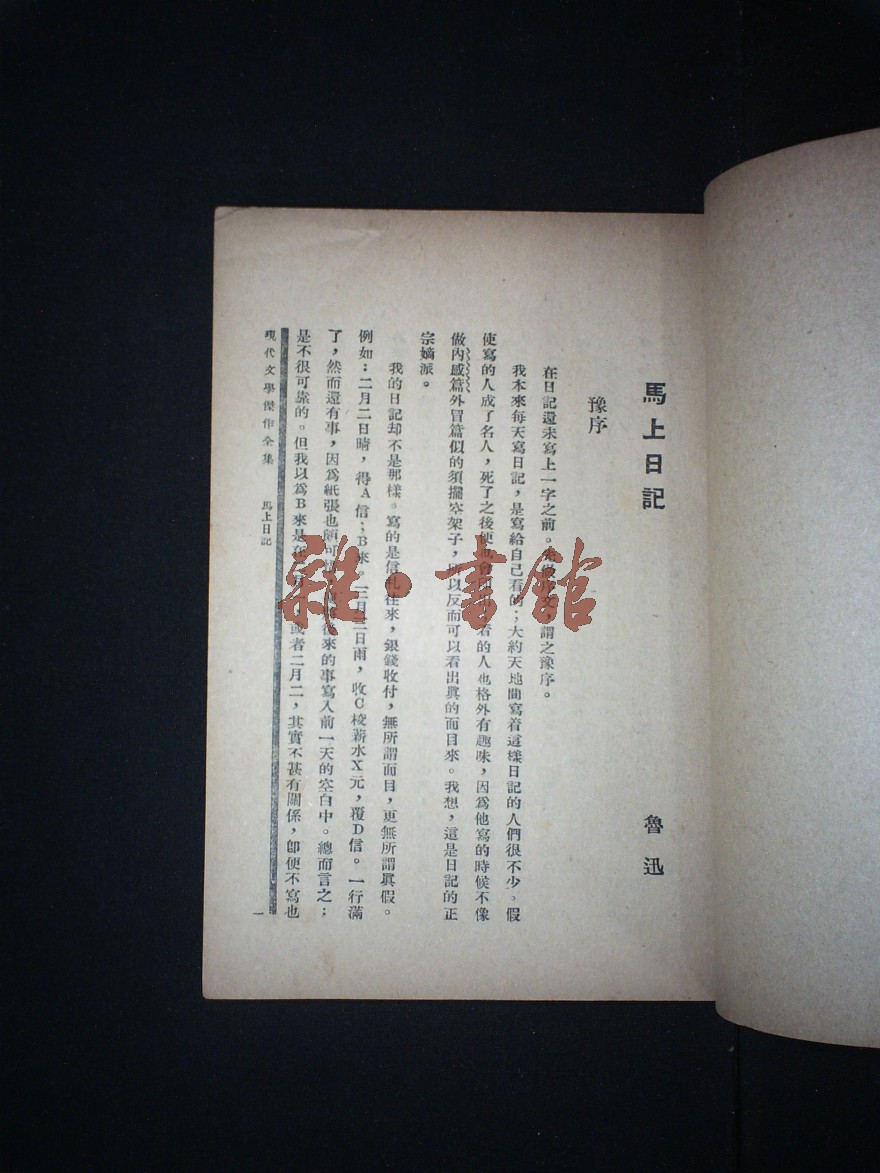 馬上日記
魯迅
豫序
在日記還未寫上一字之前。先做序文,謂之豫序。
我本來每天寫日記,是寫給自己看的;大約天地間寫着這樣日記的人們很不少。假
使寫的人成了名人,死了之後便也會印出;看的人也格外有趣味,因爲他寫的時候不像
做內感篇外冒篇似的須擺空架子,所以反而可以看出眞的面目來。我想,這是日記的正
宗嫡派。
我的日記却不是那樣。寫的是信札往來,銀錢收付,無所謂面目,更無所謂眞假。
例如:二月二日晴,得A信;B來。三月三日雨,收C校薪水X元,覆D信。一行滿
了,然而還有事,因爲紙張也頗可惜,便將後來的事寫入前一天的空白中。總而言之;
是不很可靠的。但我以爲B來是在 或者二月二,其實不甚有關係,卽便不寫也
現代文學傑作全集 馬上日記
一
雜·書館